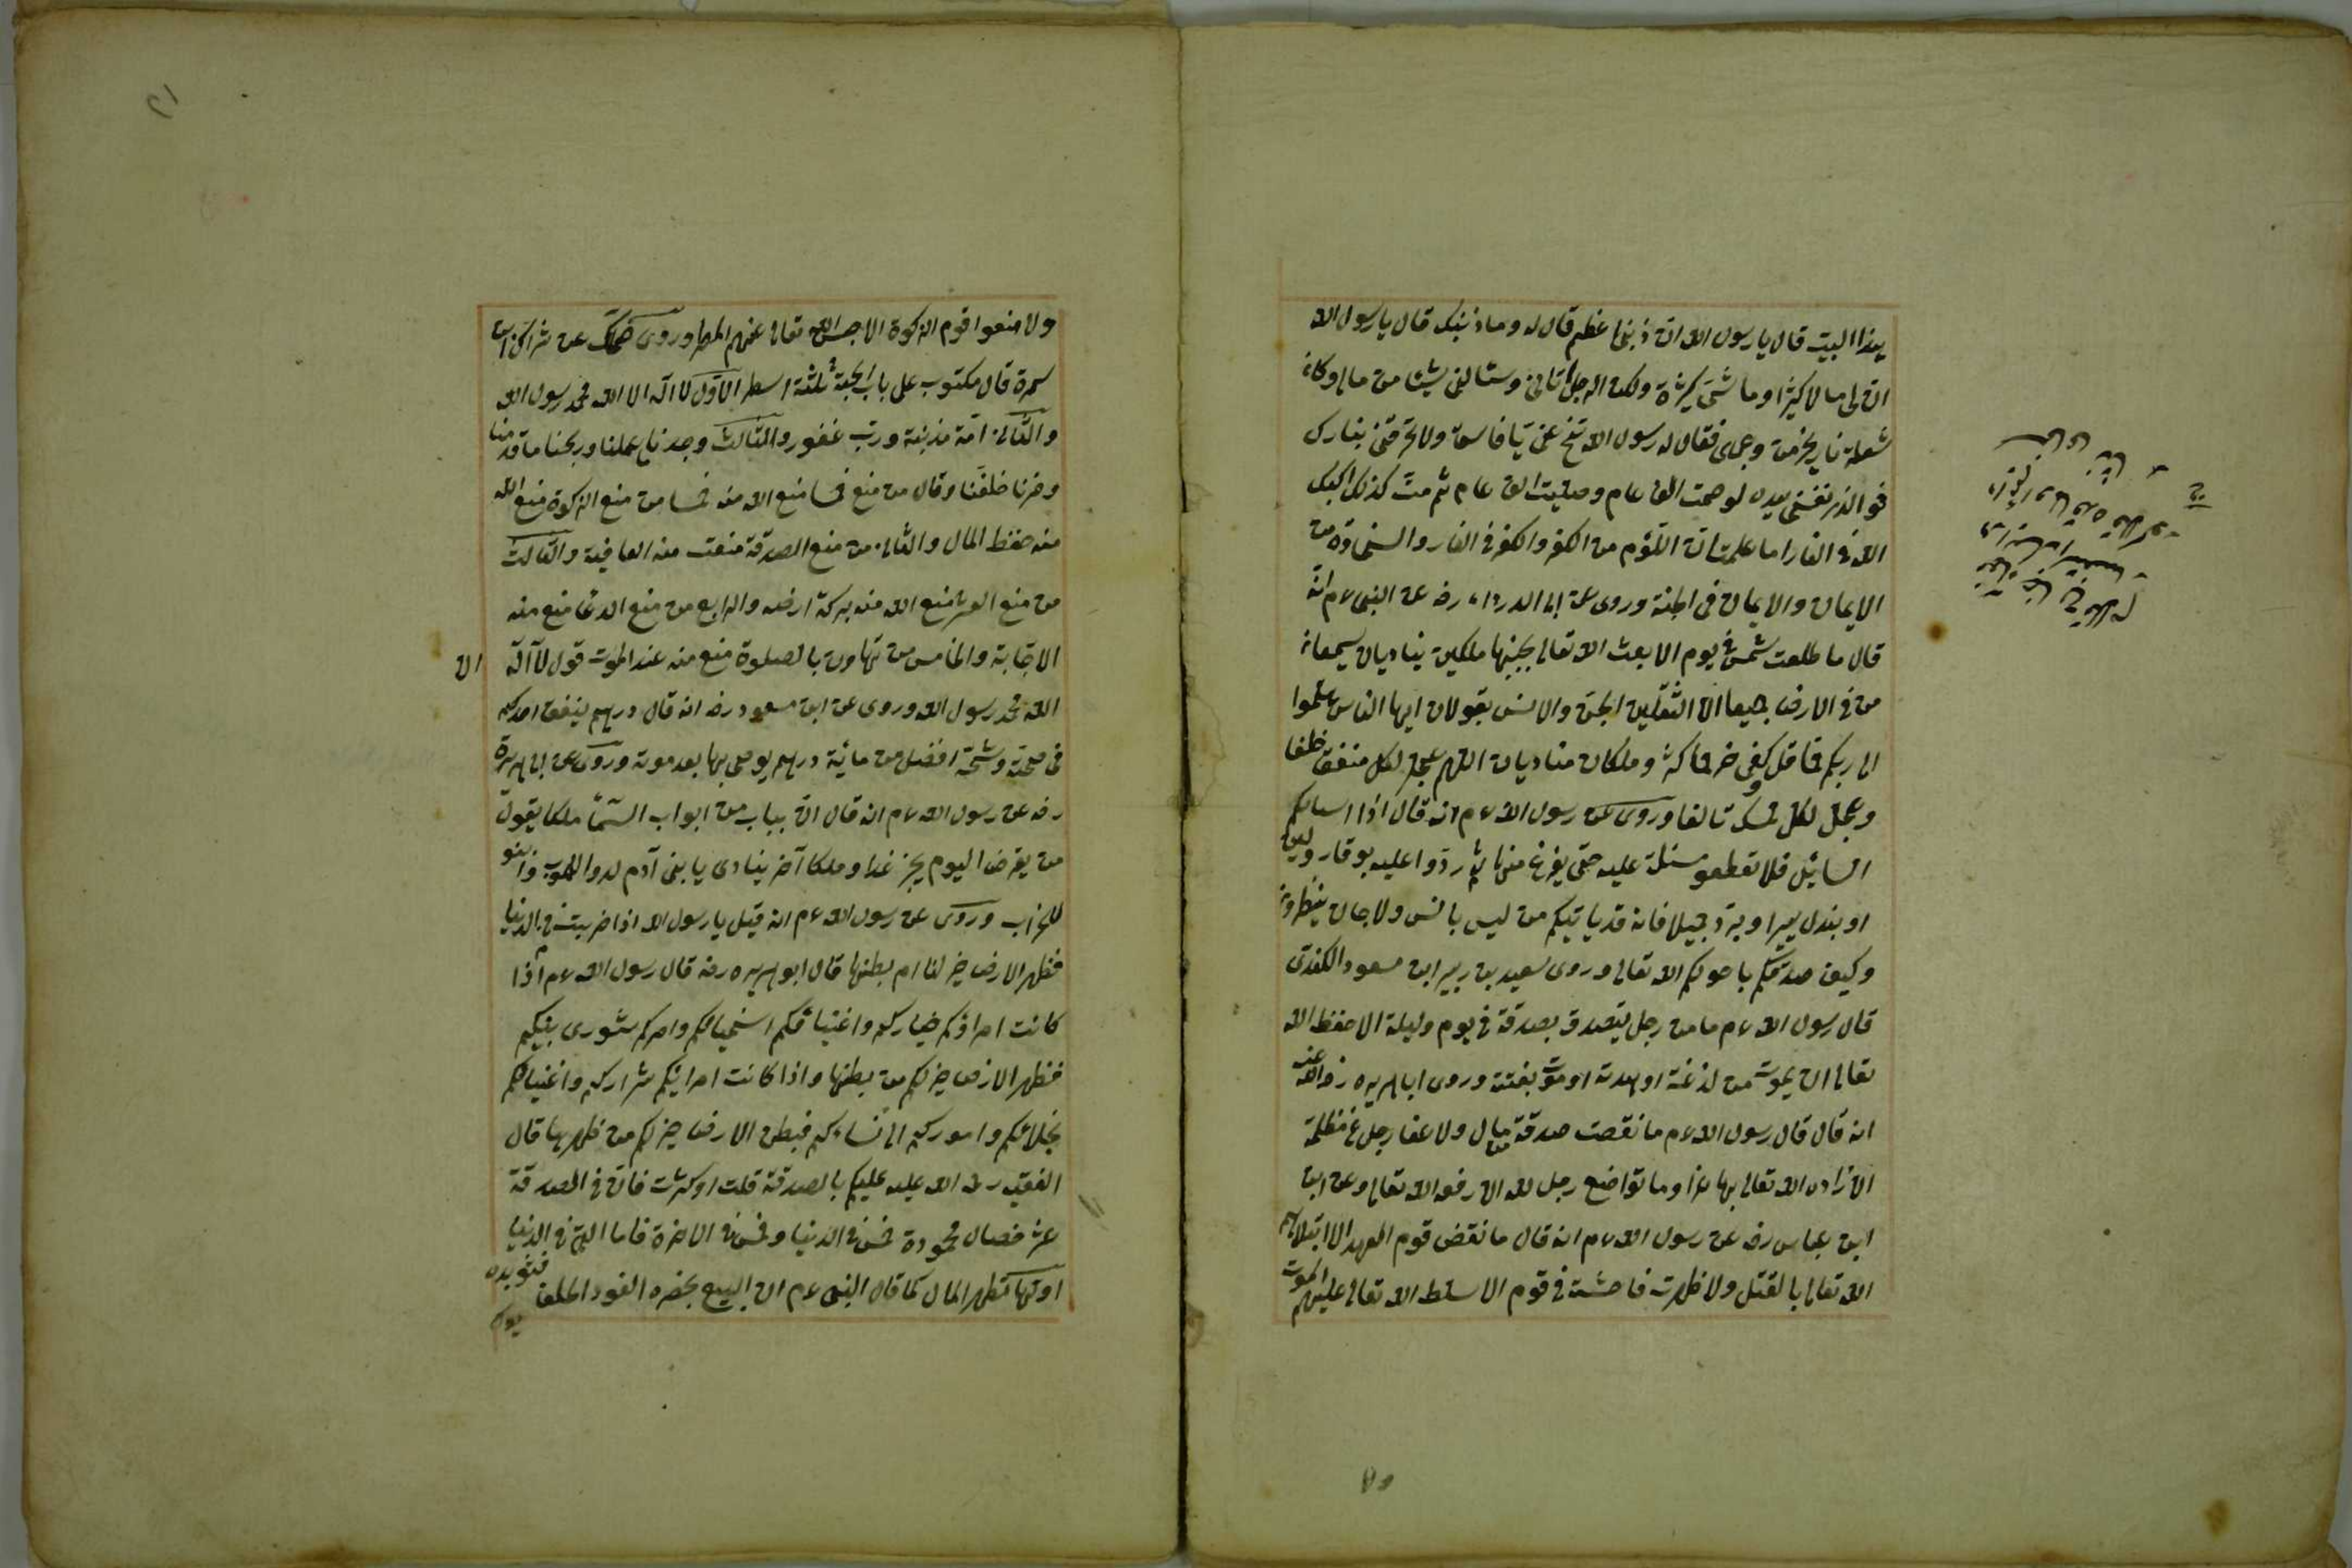 بهذا البيت قال يا رسول الله ان ذنبى عظيم قال له وما ذنبك قال يا رسول الله
ان لى مالا كثيرا وماشتى كثيرة ولكن الرجل اتانى وسألنى شيئا من مالى وكان
شعلة نار يخرج من وجهى فقال له رسول الله تنح عنى يا فاسق ولا تحرقنى بنارك
فوالذى نفسى بيده لو صمت الف عام وصليت الف عام ثم مت كذلك اكبك
الله فى النار اما علمت ان اللؤم من الكفر والكفر فى النار والسخاوة من
الايمان والايمان فى الجنة وروى عن ابى الدرداء رضه عن النبى ءم انه
قال ما طلعت شمس فى يوم الا بعث الله تعالى بجنبها ملكين يناديان يسمعان
من فى الارض جميعا الا الثقلين الجن والانس يقولان ايها الناس هلموا
الى ربكم فما قل كفى خير مما كثر وملكان يناديان اللهم عجل لكل منفق خلفا
وعجل لكل ممسك تالفا وروى عن رسول الله ءم انه قال اذا اسالكم
السائل فلا تقطعو مسئلة عليه حتى يفرغ منها ثم ردوا عليه بوقار ولين
او بذل يسير او برد جميل فانه قد ياتيكم من ليس بانس ولا جان ينظرون
وكيف صدقتكم بما خولكم الله تعالى وروى سعيد بن مسعود الكندى
قال رسول الله ءم ما من رجل يتصدق بصدقة فى يوم وليلة الا حفظ الله
تعالى ان يموت من لدغة او هدمة او موت بغتة وروى ابا هريره رض الله عنه
انه قال قال رسول الله ءم ما نقصت صدقة مال ولا عفا رجل عن مظلمة
الا زاده الله تعالى بها عزا وما تواضع رجل لله الا رفعه الله تعالى وعن ابن
ابن عباس رضه عن رسول الله ءم انه قال ما نقض قوم العهد الا ابتلاهم
الله تعالى بالقتل ولا ظهرت فاحشة فى قوم الا سلط الله تعالى عليهم الموت
ولا منعوا قوم الزكوة الا حبس الله تعالى عنهم المطر وروى ضحاك عن
سمرة قال مكتوب على باب الجنة ثلثة اسطر الاول لا اله الا الله محمد رسول الله
والثانى امة مذنبة ورب غفور والثالث وجدنا ما عملنا وربحنا ما قدمنا
وخسرنا ما خلفنا وقال من منع خمسا منع الله منه خمسا من منع الزكوة منع الله
منه حفظ المال والثانى من منع الصدقة منعت منه العافية والثالث
من منع العشر منع الله منه بركة ارضه والرابع من منع الدعا منع منه
الاجابة والخامس من تهاون بالصلوة منع منه عند الموت قول لا اله الا
الله محمد رسول الله وروى عن ابن مسعود رضه انه قال درهم ينفق احدكم
فى صحته وشحته افضل من مائة درهم يوصى بها بعد موته وروى عن ابى هريرة
رضه عن رسول الله ءم انه قال ان بباب من ابواب السماء ملكا يقول
من يقرض اليوم يجز غدا وملكا آخر ينادى يا بنى آدم لدوا للموت وابنو
للخراب وروى عن رسول الله ءم انه قيل يا رسول الله اذا خربت فى الدنيا
فظهر الارض خير لنا ام بطنها قال ابو هريره رضه قال رسول الله ءم اذا
كانت امراؤكم خياركم واغنيائكم اسخيائكم وامركم شورى بينكم
فظهر الارض خير لكم من بطنها واذا كانت امرائكم شراركم واغنيائكم
بخلائكم واموركم الى نساءكم فبطن الارض خير لكم من ظهرها قال
الفقيه رحمة الله عليه عليكم بالصدقة قلت او كثرت فان فى الصدقة
عشر خصال محمودة خمس فى الدنيا وخمس فى الاخرة فاما التى فى الدنيا
اولها تطهر المال كما قال النبى ءم ان البيع بحضره اللغو والحلف فشوبوه